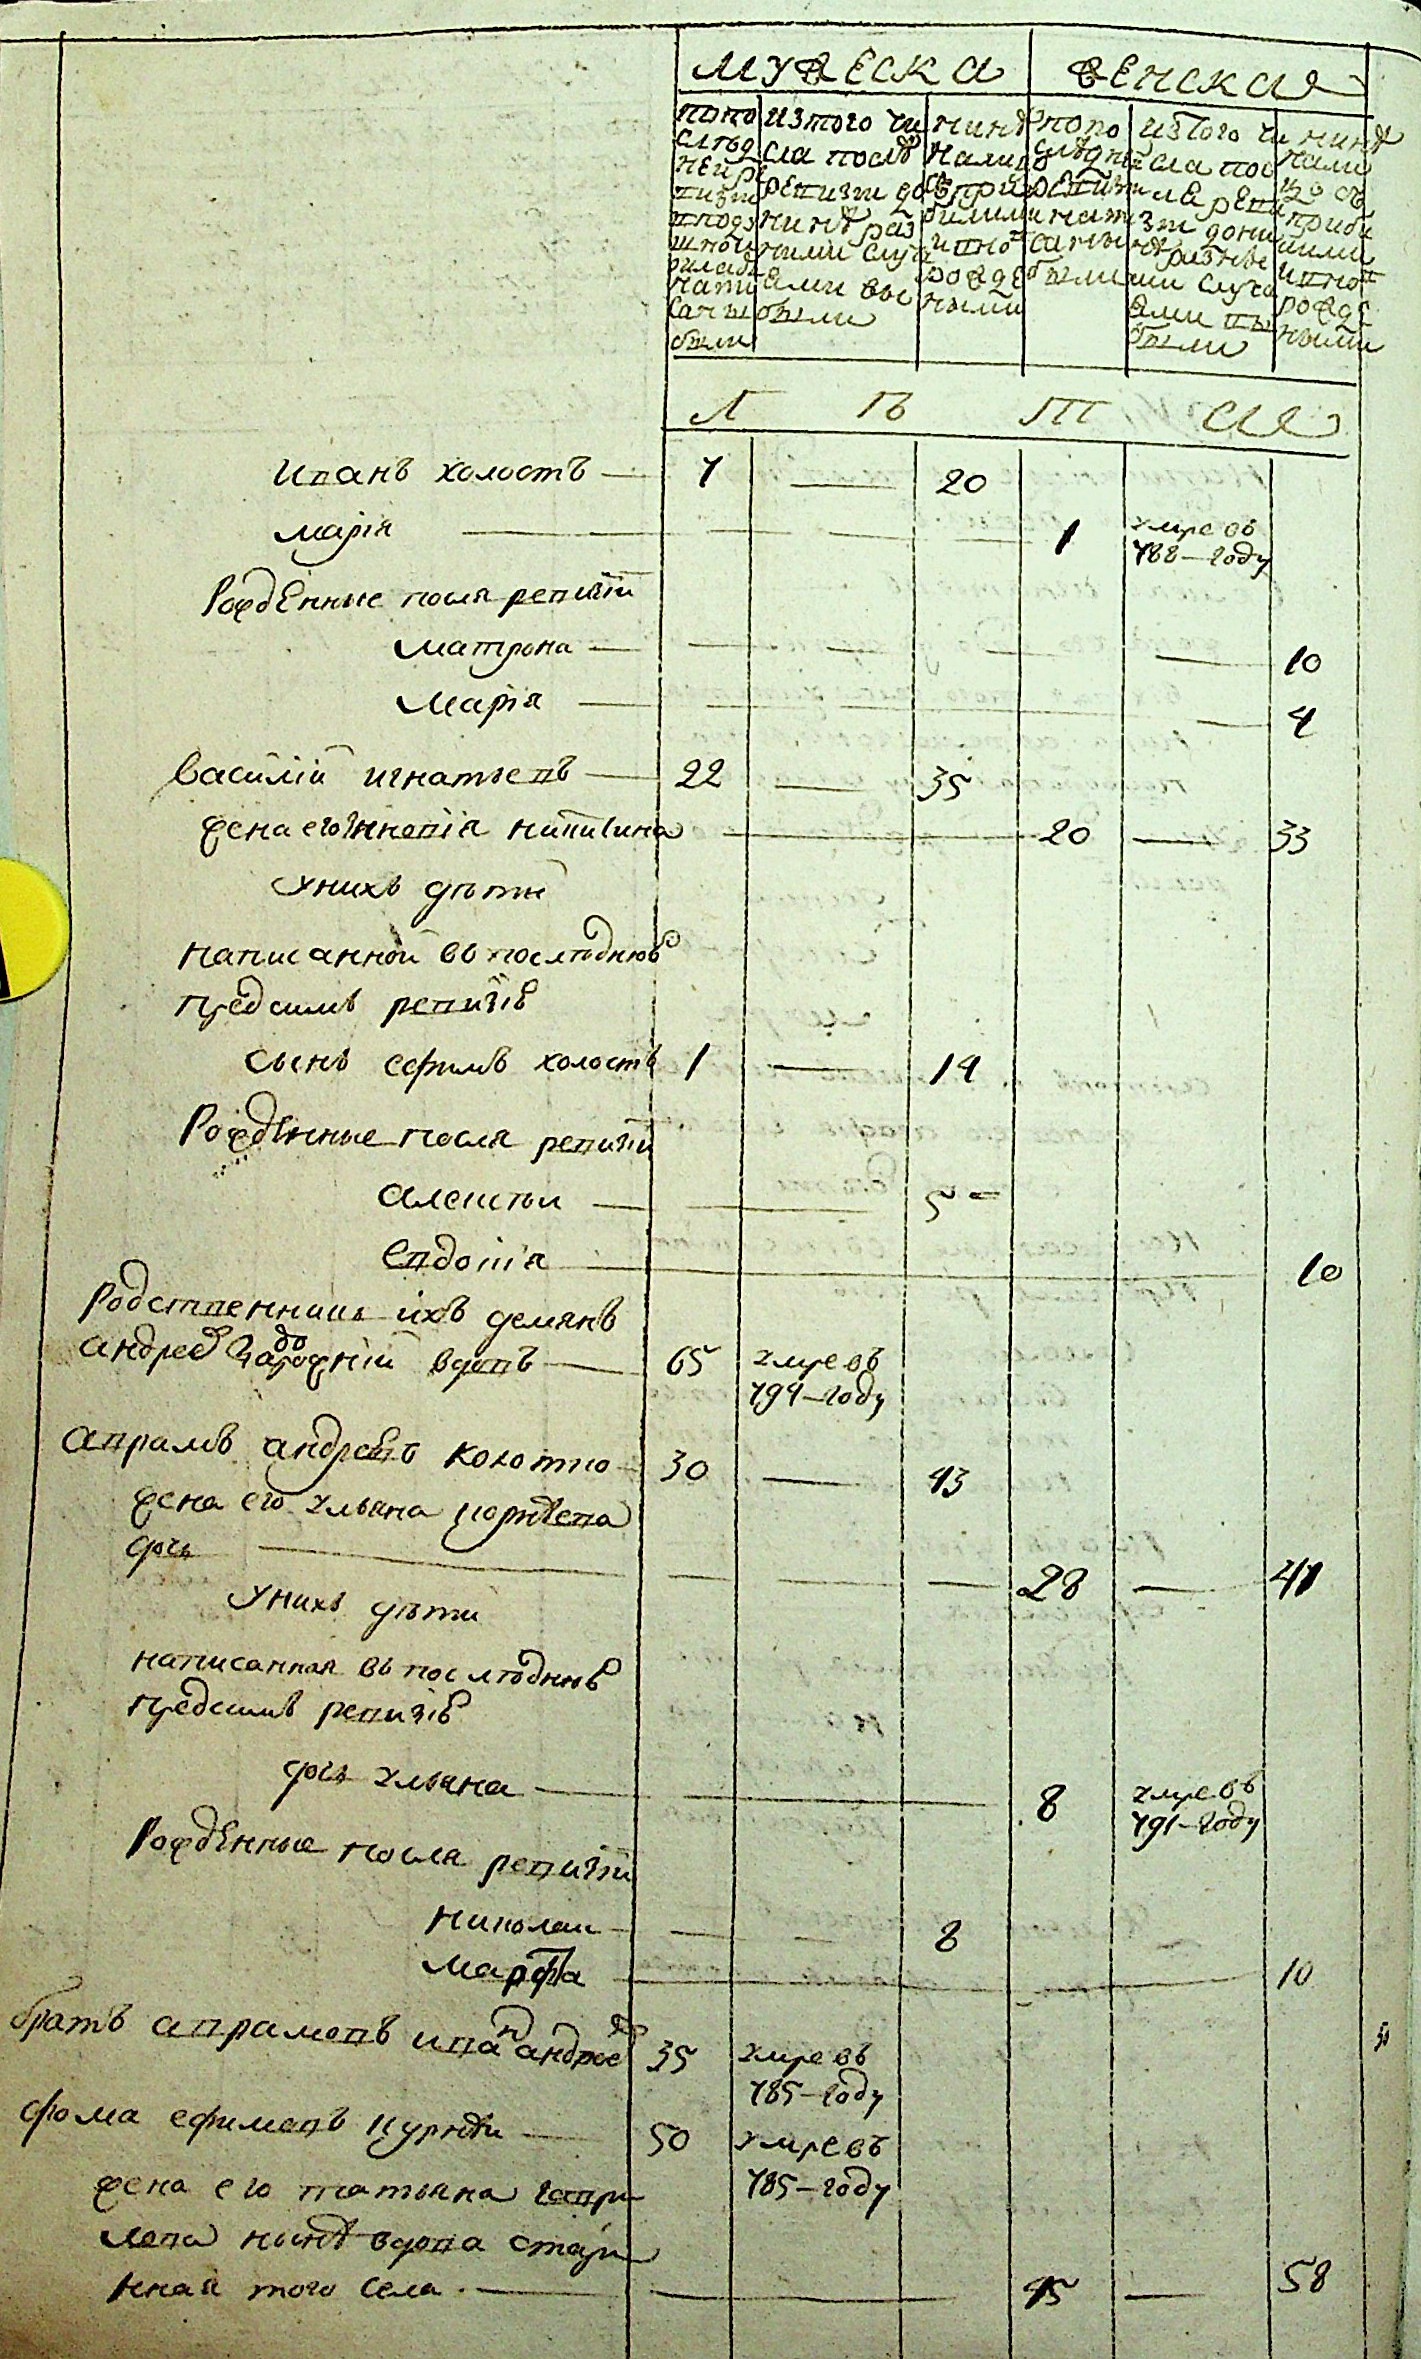 мужеска женская
попо слѣд ней ре визи и подушной окладъ написаны были
изтого числа послѣ ревизи до нинѣ разними случаями выбыли
нинѣ налицо съ прибилими и новорождеными
попо слѣдней ревизи написаны были
изтого числа после ревизи донинѣ разными случаями выбыли
нинѣ налицо съ прибилими и новорожденими
Л ѣ т а
Иванъ холостъ 7 — 20
марія — 1 умре въ
788 году
Рожденные посля ревизіи
матрона — 10
марія — 4
Василій игнатьевъ 22 — 35
жена его — 20 — 33
Унихъ дѣти
написанной въ послѣднюю
предсимъ ревизію
сынъ ефимъ холостъ 1 — 14
Рожденные посля ревизіи
алексѣи — 5
Евдокія — 10
Родственникъ ихъ демянъ
андреевъ вдовъ — 65 умре въ
794 году
аврамъ андреевъ 30 — 43
жена его ульяна
дочь — 28 — 41
Унихъ дѣти
написанная въ послѣднюю
предсимъ ревизію
дочь ульяна — 8 умре въ
791 году
Рожденные посля ревизіи
николаи — 8
марфа — 10
братъ аврамовъ иванъ андреевъ 35 умре въ
785 году
фома ефимовъ — 50 умре въ
785 году
жена его татьяна гаври
лова нынѣ вдова стари
нная того села — 45 — 58